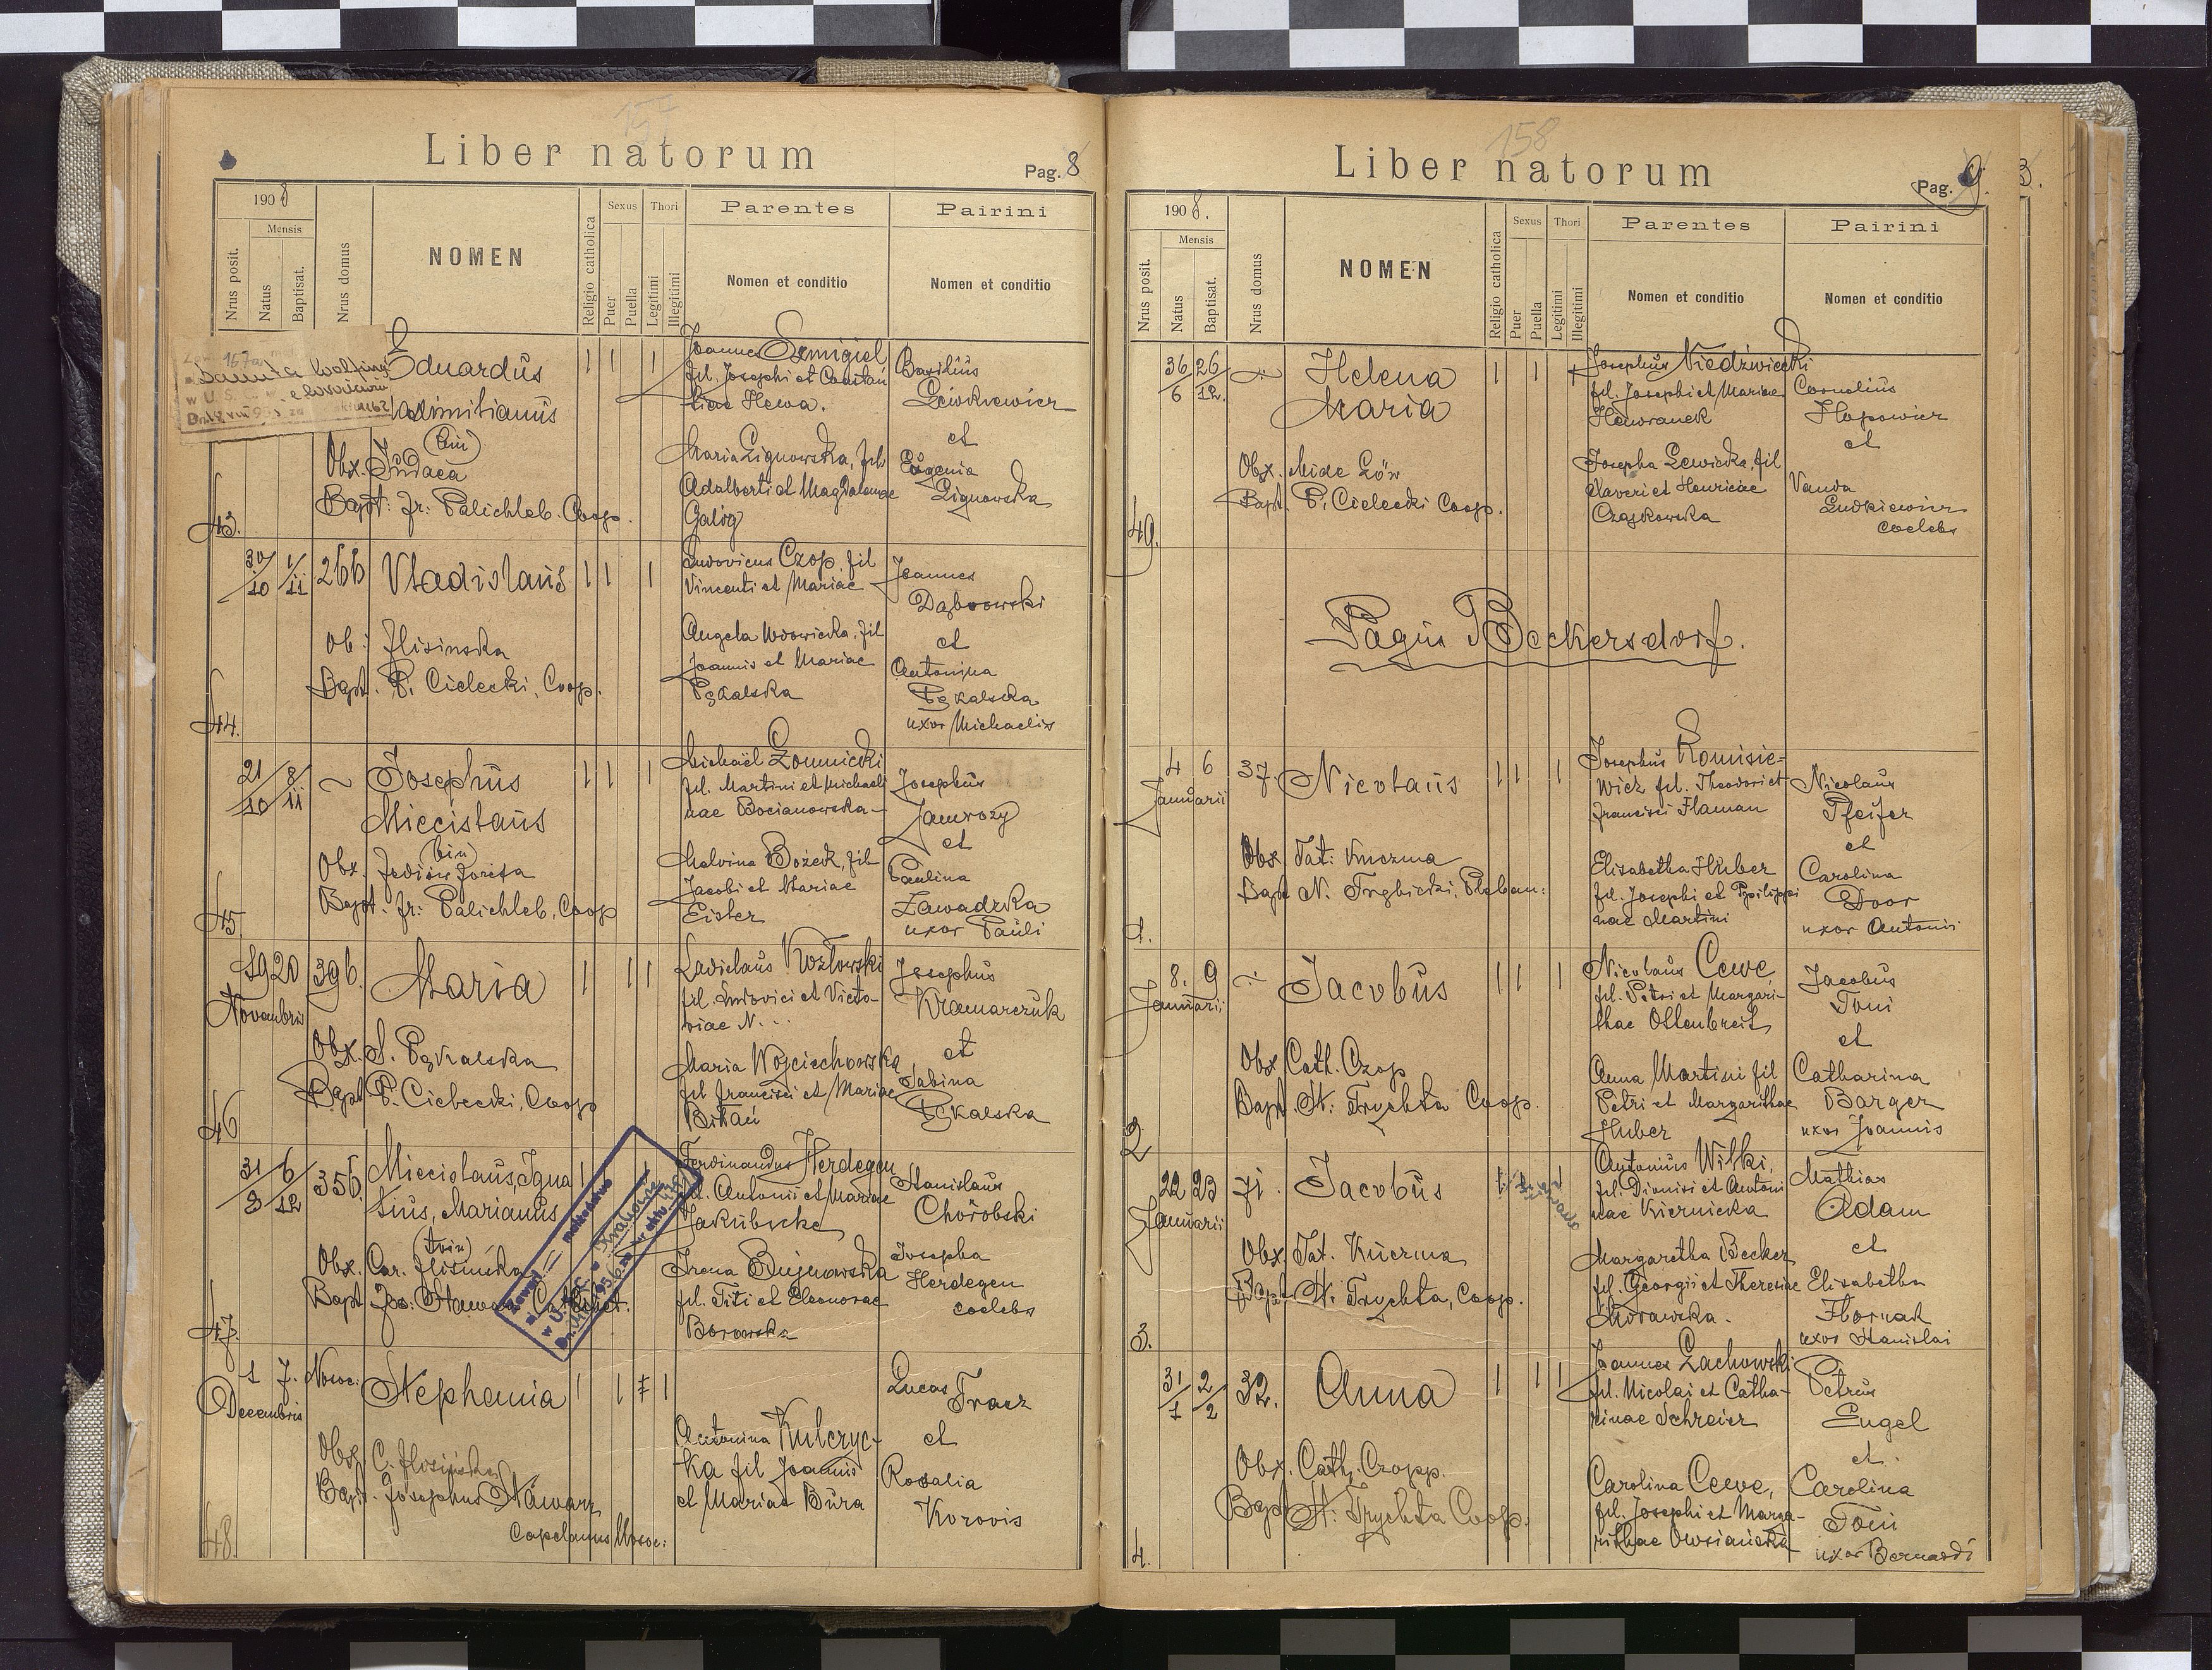 157
Liber natorum
Pag. 8
1908
Mensis
Nrus posit.
Natus
Baptisat.
Nrus domus
NOMEN
Religio catholica
Sexus
Puer
Puella
Thori
Legitimi
Illegitimi
Parentes
Nomen et conditio
Pairini
Nomen et conditio
157a
43.
Eduardus
Maximilianus
Obx. Judaea
Bapt: Fr: Palichleb. Coop.
1 1 1
Joannes Semigiel
fil. Josephi et Constan
tiae Hewa.
Maria Lignowska, fil
Adalberti et Magdalenae
Galog
Basilius
Lewkiewicz
et
Eugenia
Lignowska
44.
30/10 1/11 266 Vladislaus 1 1 1
Ob: Hisinska
Bapt. P. Cielecki, Coop.
Ludovicus Czop, fil
Vincenti et Mariae
Angela Wdowicka, fil
Joannis et Mariae
Pękalska
Joannes
Dąbrowski
et
Antonina
Pękalska
uxor Michaelis
45.
21/10 8/11 ~ Josephus 1 1 1
Miecislaus
(bin)
Obx.
Bapt. Fr: Palichleb, Coop
Michaël Łomnicki
fil. Martini et Michaeli
nae Bocianowska
Malvina Bożeck, fil
Jacobi et Mariae
Eister
Josephus
Jamrozy
et
Paulina
Zawadzka
uxor Pauli
46
19 20 396. Maria 1 1 1
Novembris
Obx. S. Pękalska
Bapt P. Cielecki, Coop
Ladislaus Kozłowski
fil. Ludovici et Victo-
riae N...
Maria Wojciechowska
fil Francisci et Mariae
Bitkau
Josephus
Kramarczuk
et
Sabina
Pękalska
47.
31/8 6/12 356. Miecislaus, Igna
tius, Marianus
Obx. Car. Hisinska
Bapt
Ferdinandus Herdegen
fil. Antonii et Mariae
Jakubicke
Irena Bujnowska
fil. Titi et Eleonorae
Borowska
Stanislaus
Chorobski
et
Josepha
Herdegen
coelebs
48.
1 7. Nosoc: Stephania 1 1 1
Decembris
Obx C. Hisinska
Bapt. Josephus Sławarz
Capelanus Nosoc:
Antonina Kulczyc-
ka fil Joannis
et Mariae Bura
Lucas Tracz
et
Rosalia
Korovis
158
Liber natorum
Pag. 9.
3.
1908.
Mensis
Nrus posit.
Natus
Baptisat.
Nrus domus
NOMEN
Religio catholica
Sexus
Puer
Puella
Thori
Legitimi
Illegitimi
Parentes
Nomen et conditio
Pairini
Nomen et conditio
49.
26/12. Helena 1 1
Maria
Obx. Mide Löw
Bapt P. Cielecki Coop.
Josephus Niedźwiecki
fil. Josephi et Mariae
Hawranek
Josepha Lewicka, fil
Xaveri et Henricae
Czajkowska
Cornelius
Hopowicz
et
Vanda
Ludkiewicz
coelebs
Pagus Beckersdorf.
1.
4 6 37. Nicolaus 1 1 1
Januarii
Obx Tat: Kuczma
Bapt N. Trębicki, Pleban:
Josephus Romisie-
wicz fil. Theodori et
Francisci Flaman
Elisabetha Huber
fil. Josephi et Philippi
nae Martini
Nicolaus
Pfeifer
et
Carolina
Door
uxor Antonii
2
8. 9 Jacobus 1 1 1
Januarii
Obx Cath. Czop
Bapt. St: Trychta Coop.
Nicolaus Cewe
fil. Petri et Margari-
thae Ottenbreit
Anna Martini fil
Petri et Margarithae
Huber
Jacobus
Toni
et
Catharina
Barger
uxor Joannis
3.
22 23 71. Jacobus
Januarii
Obx. Tat. Kuczma
Bapt St: Trychta, Coop.
Antonius Wilki,
fil. Dionisi et Antoni
nae Kiernicka
Margaretha Becker
fil. Georgii et Theresiae
Morawska.
Mathias
Adam
et
Elisabetha
Hornad
uxor Stanislai
4.
31/1 2/2 32. Anna 1 1 1
Obx. Cath. Czopp.
Bapt St: Trychta Coop.
Joannes Lachowski
fil. Nicolai et Catha-
rinae Schreier
Carolina Cewe,
fil. Josephi et Marga-
rithae Owsianicka
Petrus
Engel
et.
Carolina
Toni
uxor Bernardi